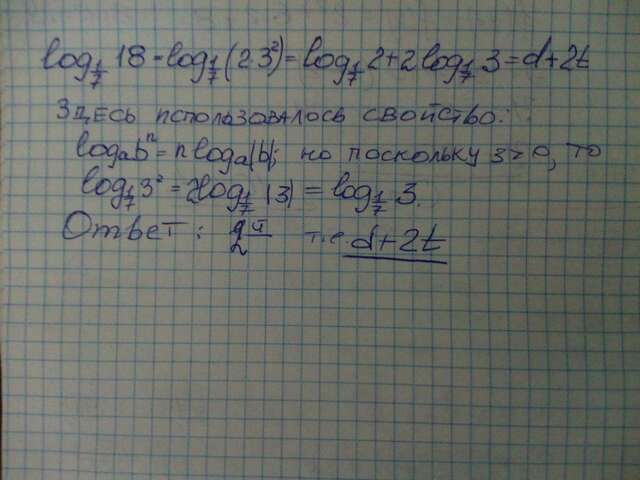 log_{1/7} 18 = log_{1/7} (2·3²) = log_{1/7} 2 + 2 log_{1/7} 3 = d + 2t
Здесь использовалось свойство:
log_a bⁿ = n log_a |b|; но поскольку 3>0, то
log_{1/7} 3² = 2log_{1/7} |3| = log_{1/7} 3.
Ответ: т.е. d+2t